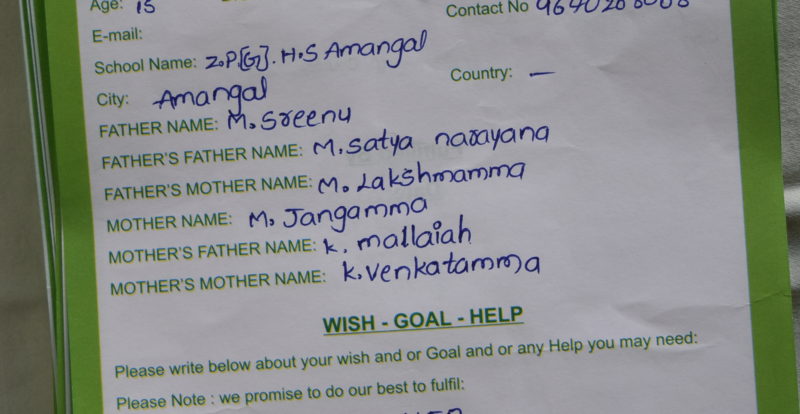 Age: 15
Contact No
E-mail:
School Name: Z.P.[G]. H.S Amangal
City: Amangal Country: —
FATHER NAME: M. Sreenu
FATHER'S FATHER NAME: M. Satya narayana
FATHER'S MOTHER NAME: M. Lakshmamma
MOTHER NAME: M. Jangamma
MOTHER'S FATHER NAME: K. mallaiah
MOTHER'S MOTHER NAME: K. Venkatamma
WISH - GOAL - HELP
Please write below about your wish and or Goal and or any Help you may need:
Please Note : we promise to do our best to fulfil: